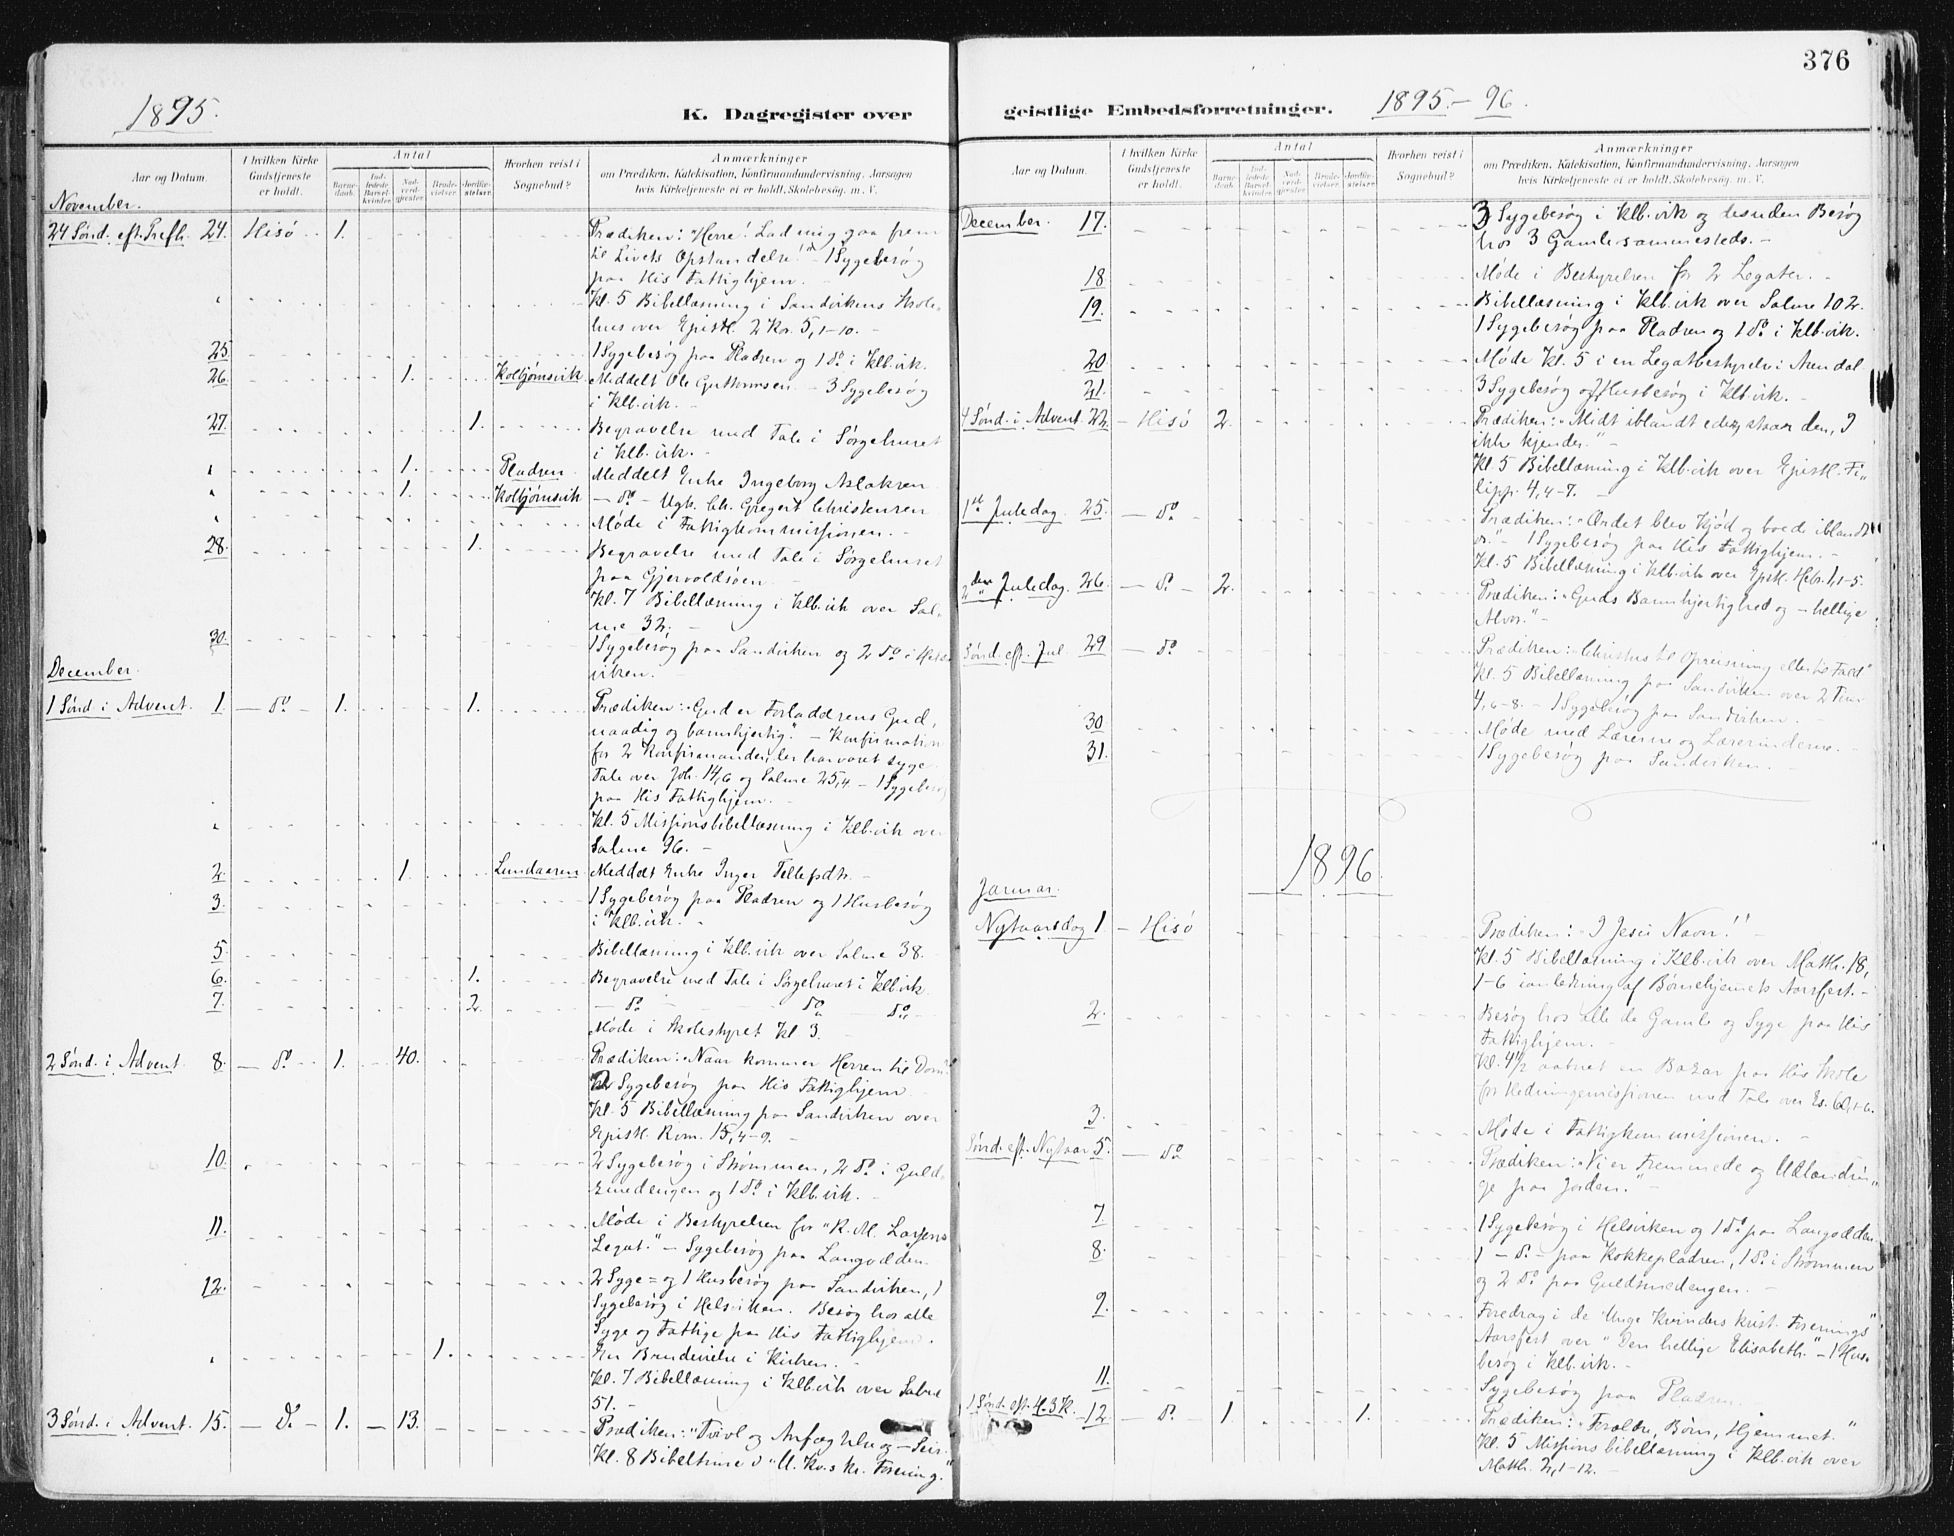 376
1895.
K. Dagregister over
Aar og Datum.
I hvilken Kirke Gudstjeneste er holdt.
Antal
Barne-daab.
Ind-ledede Barsel-kvinder.
Nad-verd-gjester.
Brude-vielser.
Jordfæ-stelser.
Hvorhen reist i Sognebud?
Anmærkninger
om Prædiken, Katekisation, Konfirmandundervisning, Aarsagen
hvis Kirketjeneste ei er holdt, Skolebesøg. m. V.
November.
24 Sønd. eft. Trefh. 24. Hisø 1. Prædiken: "Herre! Lad mig gaa frem
til Livets Opstandelse!" – 1 Sygebesøg
paa His Fattighjem. –
" Kl. 5 Bibellæsning i Sandvikens Skole-
hus over Epistl. 2 Kor. 5,1-10. –
25. 1 Sygebesøg paa Pladsen og 1 do i Klb.vik.
26. 1. Kolbjørnsvik Meddelt Ole Guttormsen. – 3 Sygebesøg
i Klb.vik. –
27. 1. Begravelse med Tale i Sørgehuset
i Klb.vik. –
" 1. Pladsen Meddelt Enke Ingeborg Aslaksen
" 1. Kolbjørnsvik – do – Ugk. Chr. Gregert Christensen
" Møde i Fattigkommissionen. –
28. 1. Begravelse med Tale i Sørgehuset
paa Gjervoldsøen. –
Kl. 7 Bibellæsning i Klb.vik over Sal-
me 32. –
30. 1 Sygebesøg paa Sandviken og 2 do i Hels-
viken. –
December.
1 Sønd. i Advent. 1. – do – 1. 1. Prædiken: "Gud er Forladdsens Gud,
naadig og barmhjertig." – Konfirmation
for 2 Konfirmander, der har været syge.
Tale over Joh. 14,6 og Salme 25,4. – 1 Sygebesøg
paa His Fattighjem. –
" Kl. 5 Missionsbibellæsning i Klb.vik over
Salme 96. –
2. 1. Lundaasen Meddelt Enke Inger Tellefsdtr. –
3. 1 Sygebesøg paa Pladsen og 1 Husbesøg
i Klb.vik. –
5. Bibellæsning i Klb.vik over Salme 38. –
6. 1. Begravelse med Tale i Sørgehuset i Klb.vik
7. 2. – do – do – do –
Møde i Skolestyret Kl 3.
2 Sønd. i Advent. 8. – do – 1. 40. Prædiken: "Naar kommer Herren til Dom?"
2 Sygebesøg paa His Fattighjem –
Kl. 5 Bibellæsning paa Sandviken over
Epistl. Rom. 15,4-9. –
10. 2 Sygebesøg i Strømmen, 2 do i Guld-
smedengen og 1 do i Klb.vik. –
11. Møde i Bestyrelsen for "R. M. Larsens
Legat." – Sygebesøg paa Langodden.
12. 2 Syge= og 1 Husbesøg paa Sandviken, 1
Sygebesøg i Helsviken. Besøg hos alle
Syge og Fattige paa His Fattighjem.
" 1. En Brudevielse i Kirken. –
Kl. 7 Bibellæsning i Klb.vik over Salme
51. –
3 Sønd. i Advent. 15. – do – 1. – 13. Prædiken: "Tvivl og Anfægtelse og – Seir.
Kl. 8 Bibeltime i "U. Kv.s kr. Forening."
geistlige Embedsforretninger.
1895.–96.
Aar og Datum.
I hvilken Kirke Gudstjeneste er holdt.
Antal
Barne-daab.
Ind-ledede Barsel-kvinder.
Nad-verd-gjester.
Brude-vielser.
Jordfæ-stelser.
Hvorhen reist i Sognebud?
Anmærkninger
om Prædiken, Katekisation, Konfirmandundervisning, Aarsagen
hvis Kirketjeneste ei er holdt, Skolebesøg. m. V.
December. 17. 3 Sygebesøg i Klb.vik og desuden Besøg
hos 3 Gamle sammesteds. –
18 Møde i Bestyrelsen for 2 Legater. –
19. Bibellæsning i Klb.vik over Salme 102.
1 Sygebesøg paa Pladsen og 1 do i Klb.vik.
20 Møde Kl. 5 i en Legatbestyrelse i Arendal.
21. 3 Sygebesøg og 1 Husbesøg i Klb.vik. –
4 Sønd. i Advent. 22. – Hisø 2. Prædiken: "Midt iblandt eder staar den, I
ikke kjender." –
Kl. 5 Bibellæsning i Klb.vik over Epistl. Fi-
lipp. 4,4-7. –
1ste Juledag. 25. – do Prædiken: "Ordet blev Kjød og boede iblandt
os." – 1 Sygebesøg paa His Fattighjem. –
Kl. 5 Bibellæsning i Klb.vik over Epistl. Hebr. 1,1-5.
2den Juledag. 26. – do – 2. Prædiken: "Guds Barmhjertighed og – hellige
Alvor." –
Sønd. eft. Jul. 29 – do Prædiken: "Christus til Opreisning eller til Fald"
Kl. 5 Bibellæsning paa Sandviken over 2 Tim.
4,6-8. – 1 Sygebesøg paa Sandviken. –
30 Møde med Lærerne og Lærerinderne. –
31. 1 Sygebesøg paa Sandviken. –
1896.
Januar.
Nytaarsdag 1 – Hisø Prædiken: "I Jesu Navn!" –
Kl. 5 Bibellæsning i Klb.vik over Matth. 18,
1-6 i anledning af Børnehjemets Aarsfest. –
2. Besøg hos alle de Gamle og Syge paa His
Fattighjem. –
Kl. 4½ aabnet en Bazar paa His Skole
for Hedningemissionen med Tale over Es. 60,1-6.
3. Møde i Fattigkommissionen. –
Sønd. eft. Nytaar 5. – do Prædiken: "Vi er Fremmede og Udlændin-
ge paa Jorden." –
7. 1 Sygebesøg i Helsviken og 1 do paa Langodden.
8. 1 – do – paa Kokkepladsen, 1 do i Strømmen
og 2 do paa Guldsmedengen. –
9. Foredrag i de "Unge Kvinders krist. Forenings"
Aarsfest over "Den hellige Elisabeth." – 1 Hus-
besøg i Klb.vik. –
11. Sygebesøg paa Pladsen. –
1 Sønd. eft. H.3K. 12. – do 1. 1. Prædiken: "Forældre, Børn, Hjemmet."
Kl. 5 Missionsbibellæsning i Klb.vik over
Matth. 2,1-12. –